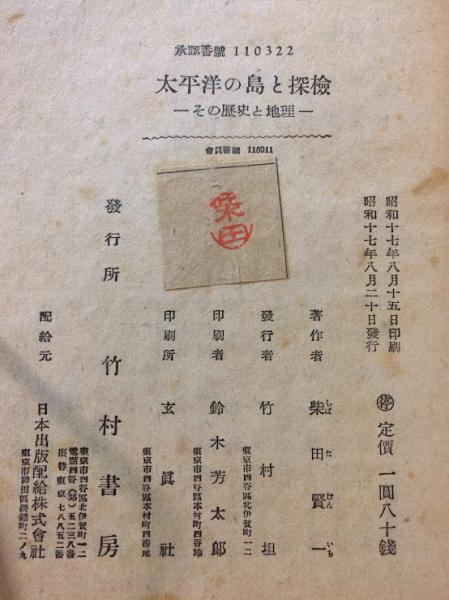 承認番號 110322
太平洋の島と探檢
―その歷史と地理―
會員番號 116011
柴田
昭和十七年八月十五日印刷
昭和十七年八月二十日發行
㊕ 定價 一圓八十錢
著作者 柴田賢一
しば た けん いち
發行者 竹村坦
東京市四谷區北伊賀町一二
印刷者 鈴木芳太郎
東京市四谷區本村町四番地
印刷所 玄眞社
東京市四谷區本村町四番地
發行所 竹村書房
東京市四谷區北伊賀町一二
電話四谷(35)五二三八番
振替東京七八八五二番
配給元 日本出版配給株式會社
東京市神田區淡路町二ノ九